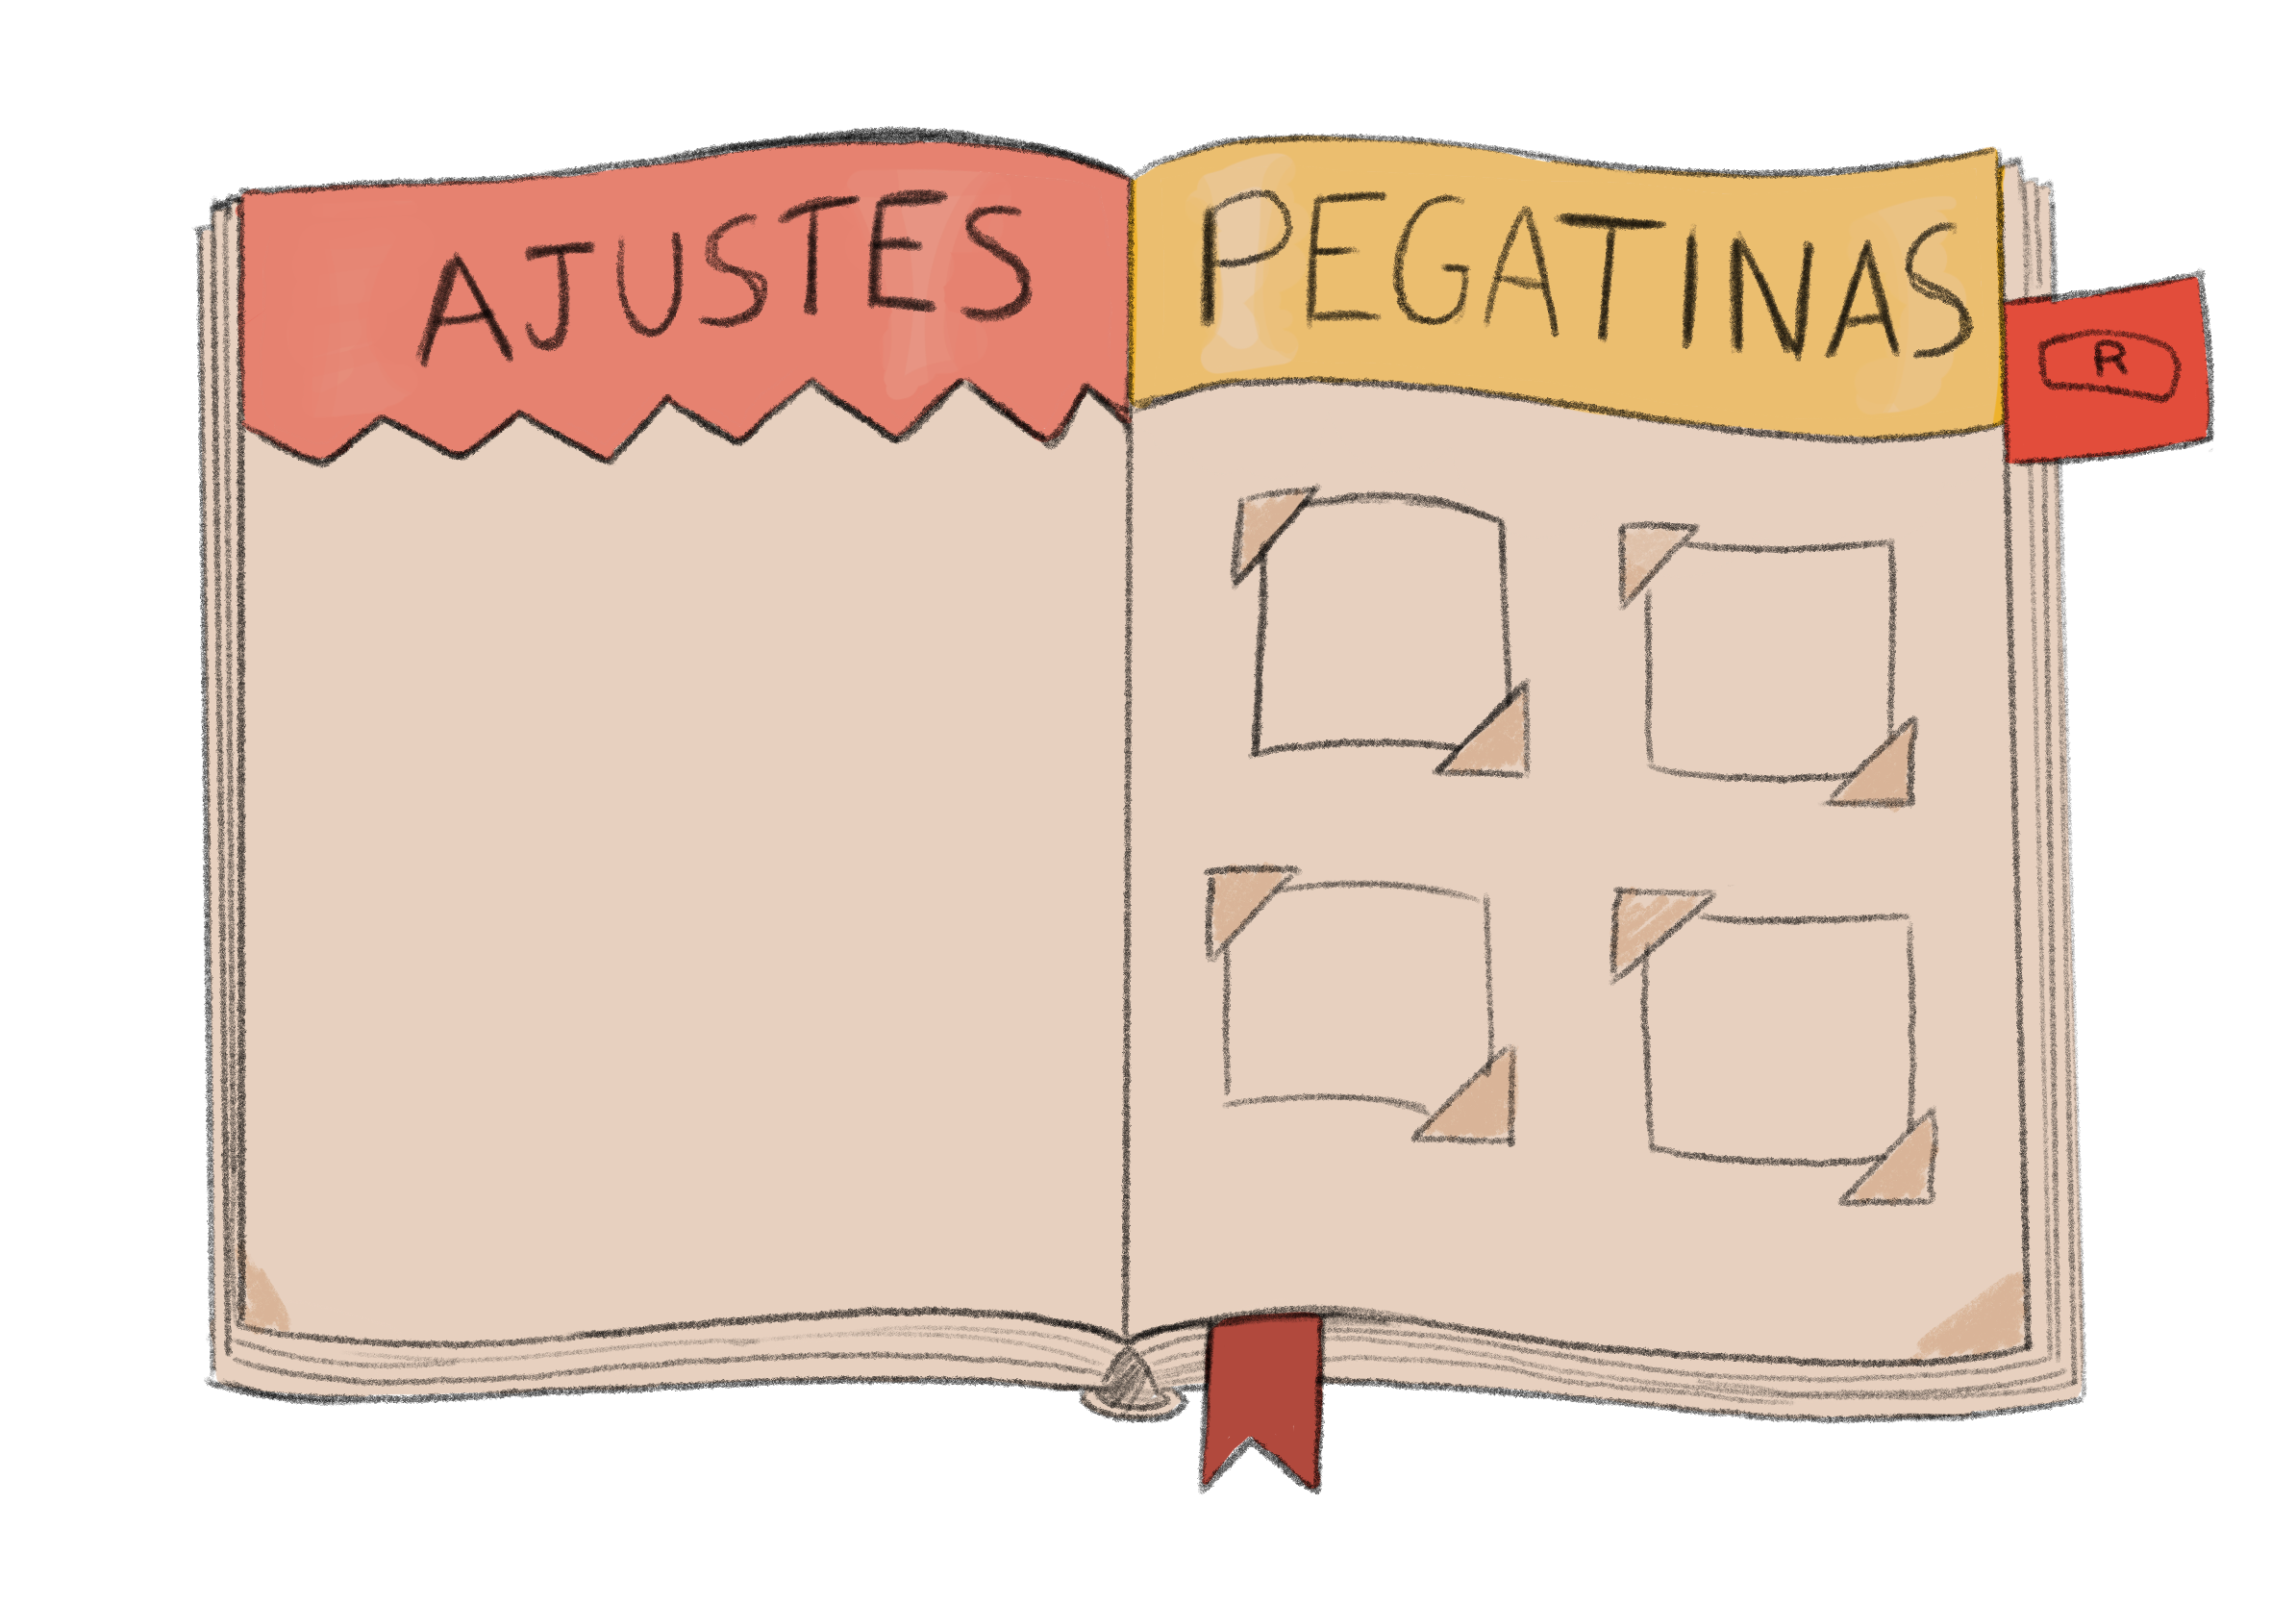 AJUSTES
PEGATINAS
R